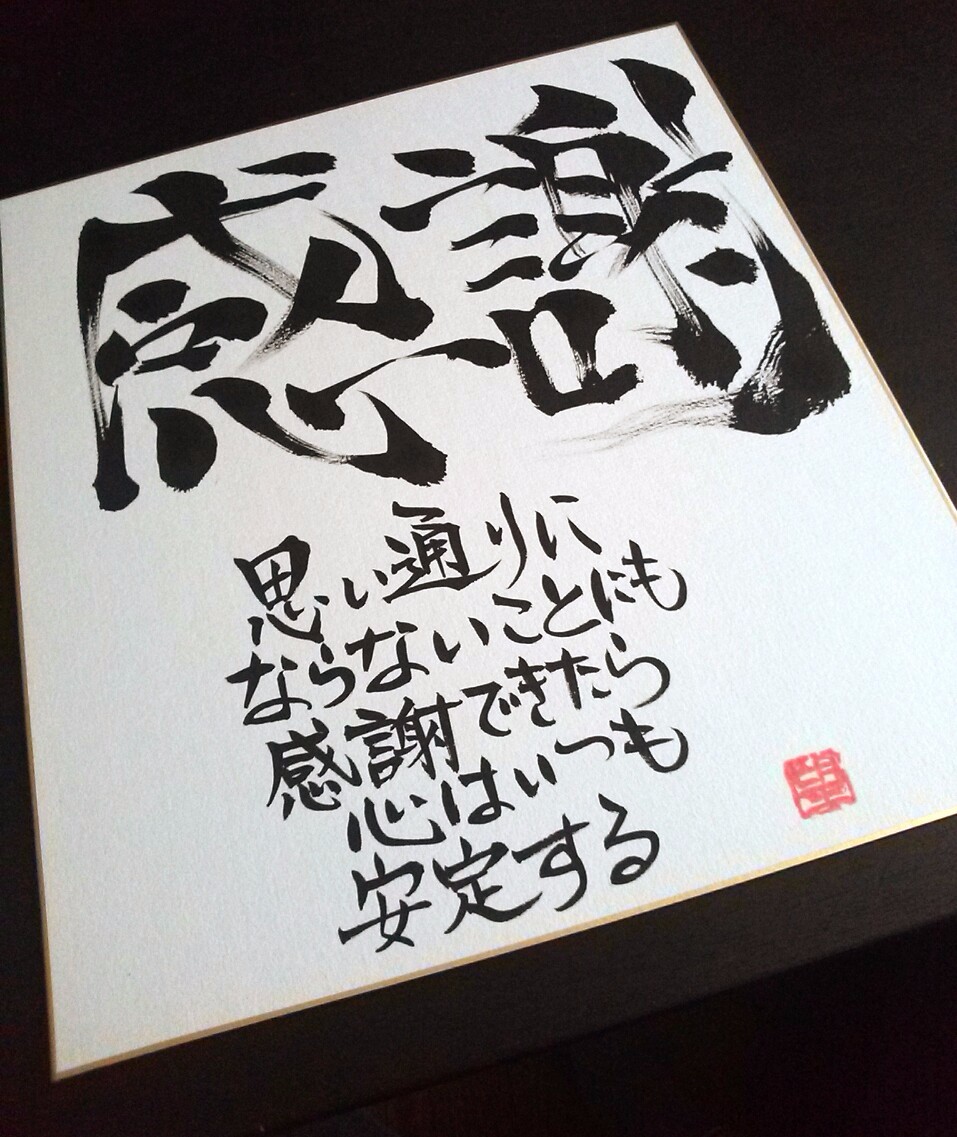 感謝
思い通りに
ならないことにも
感謝できたら
心はいつも
安定する